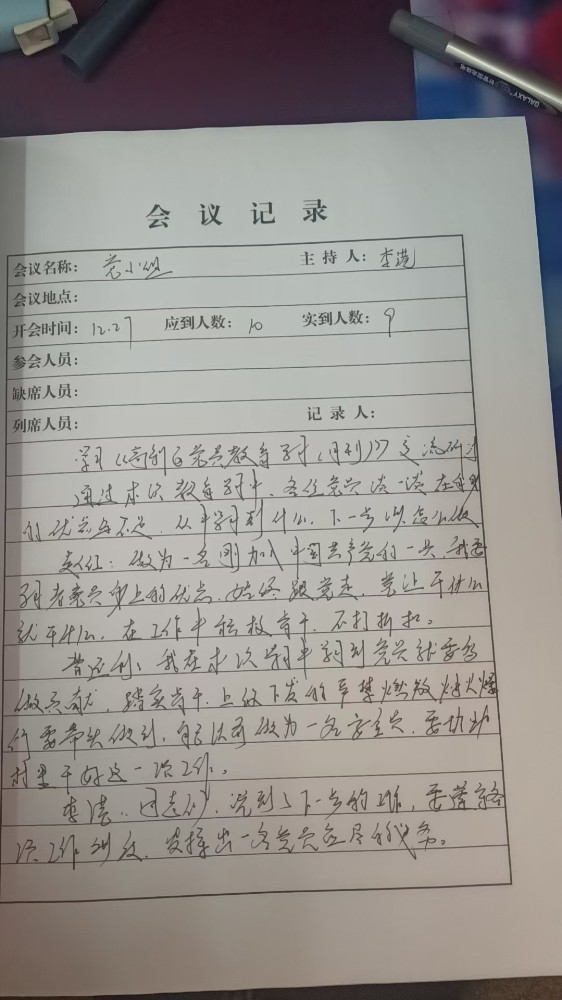 会议记录
会议名称：党小组 主持人：李洪
会议地点：
开会时间：12.27 应到人数：10 实到人数：9
参会人员：
缺席人员：
列席人员： 记录人：
学习《党员教育学习（月刊）》交流研讨
通过本次教育学习，各位党员谈一谈在自身
的优点与不足，从中学到什么，下一步该怎么做
做为一名刚加入中国共产党的一员，我要
学习老党员身上的优点，始终跟党走，党让干什么
就干什么，在工作中积极肯干，不打折扣。
我在本次学习中学到党员就要多
做贡献，踏实肯干，上级下发的严禁燃放烟火爆
竹要带头做到，做为一名党员，要协助
村里干好这一项工作。
同志们，说到下一步的工作，要落实各
项工作到位，发挥出一名党员应尽的义务。
GALAXY